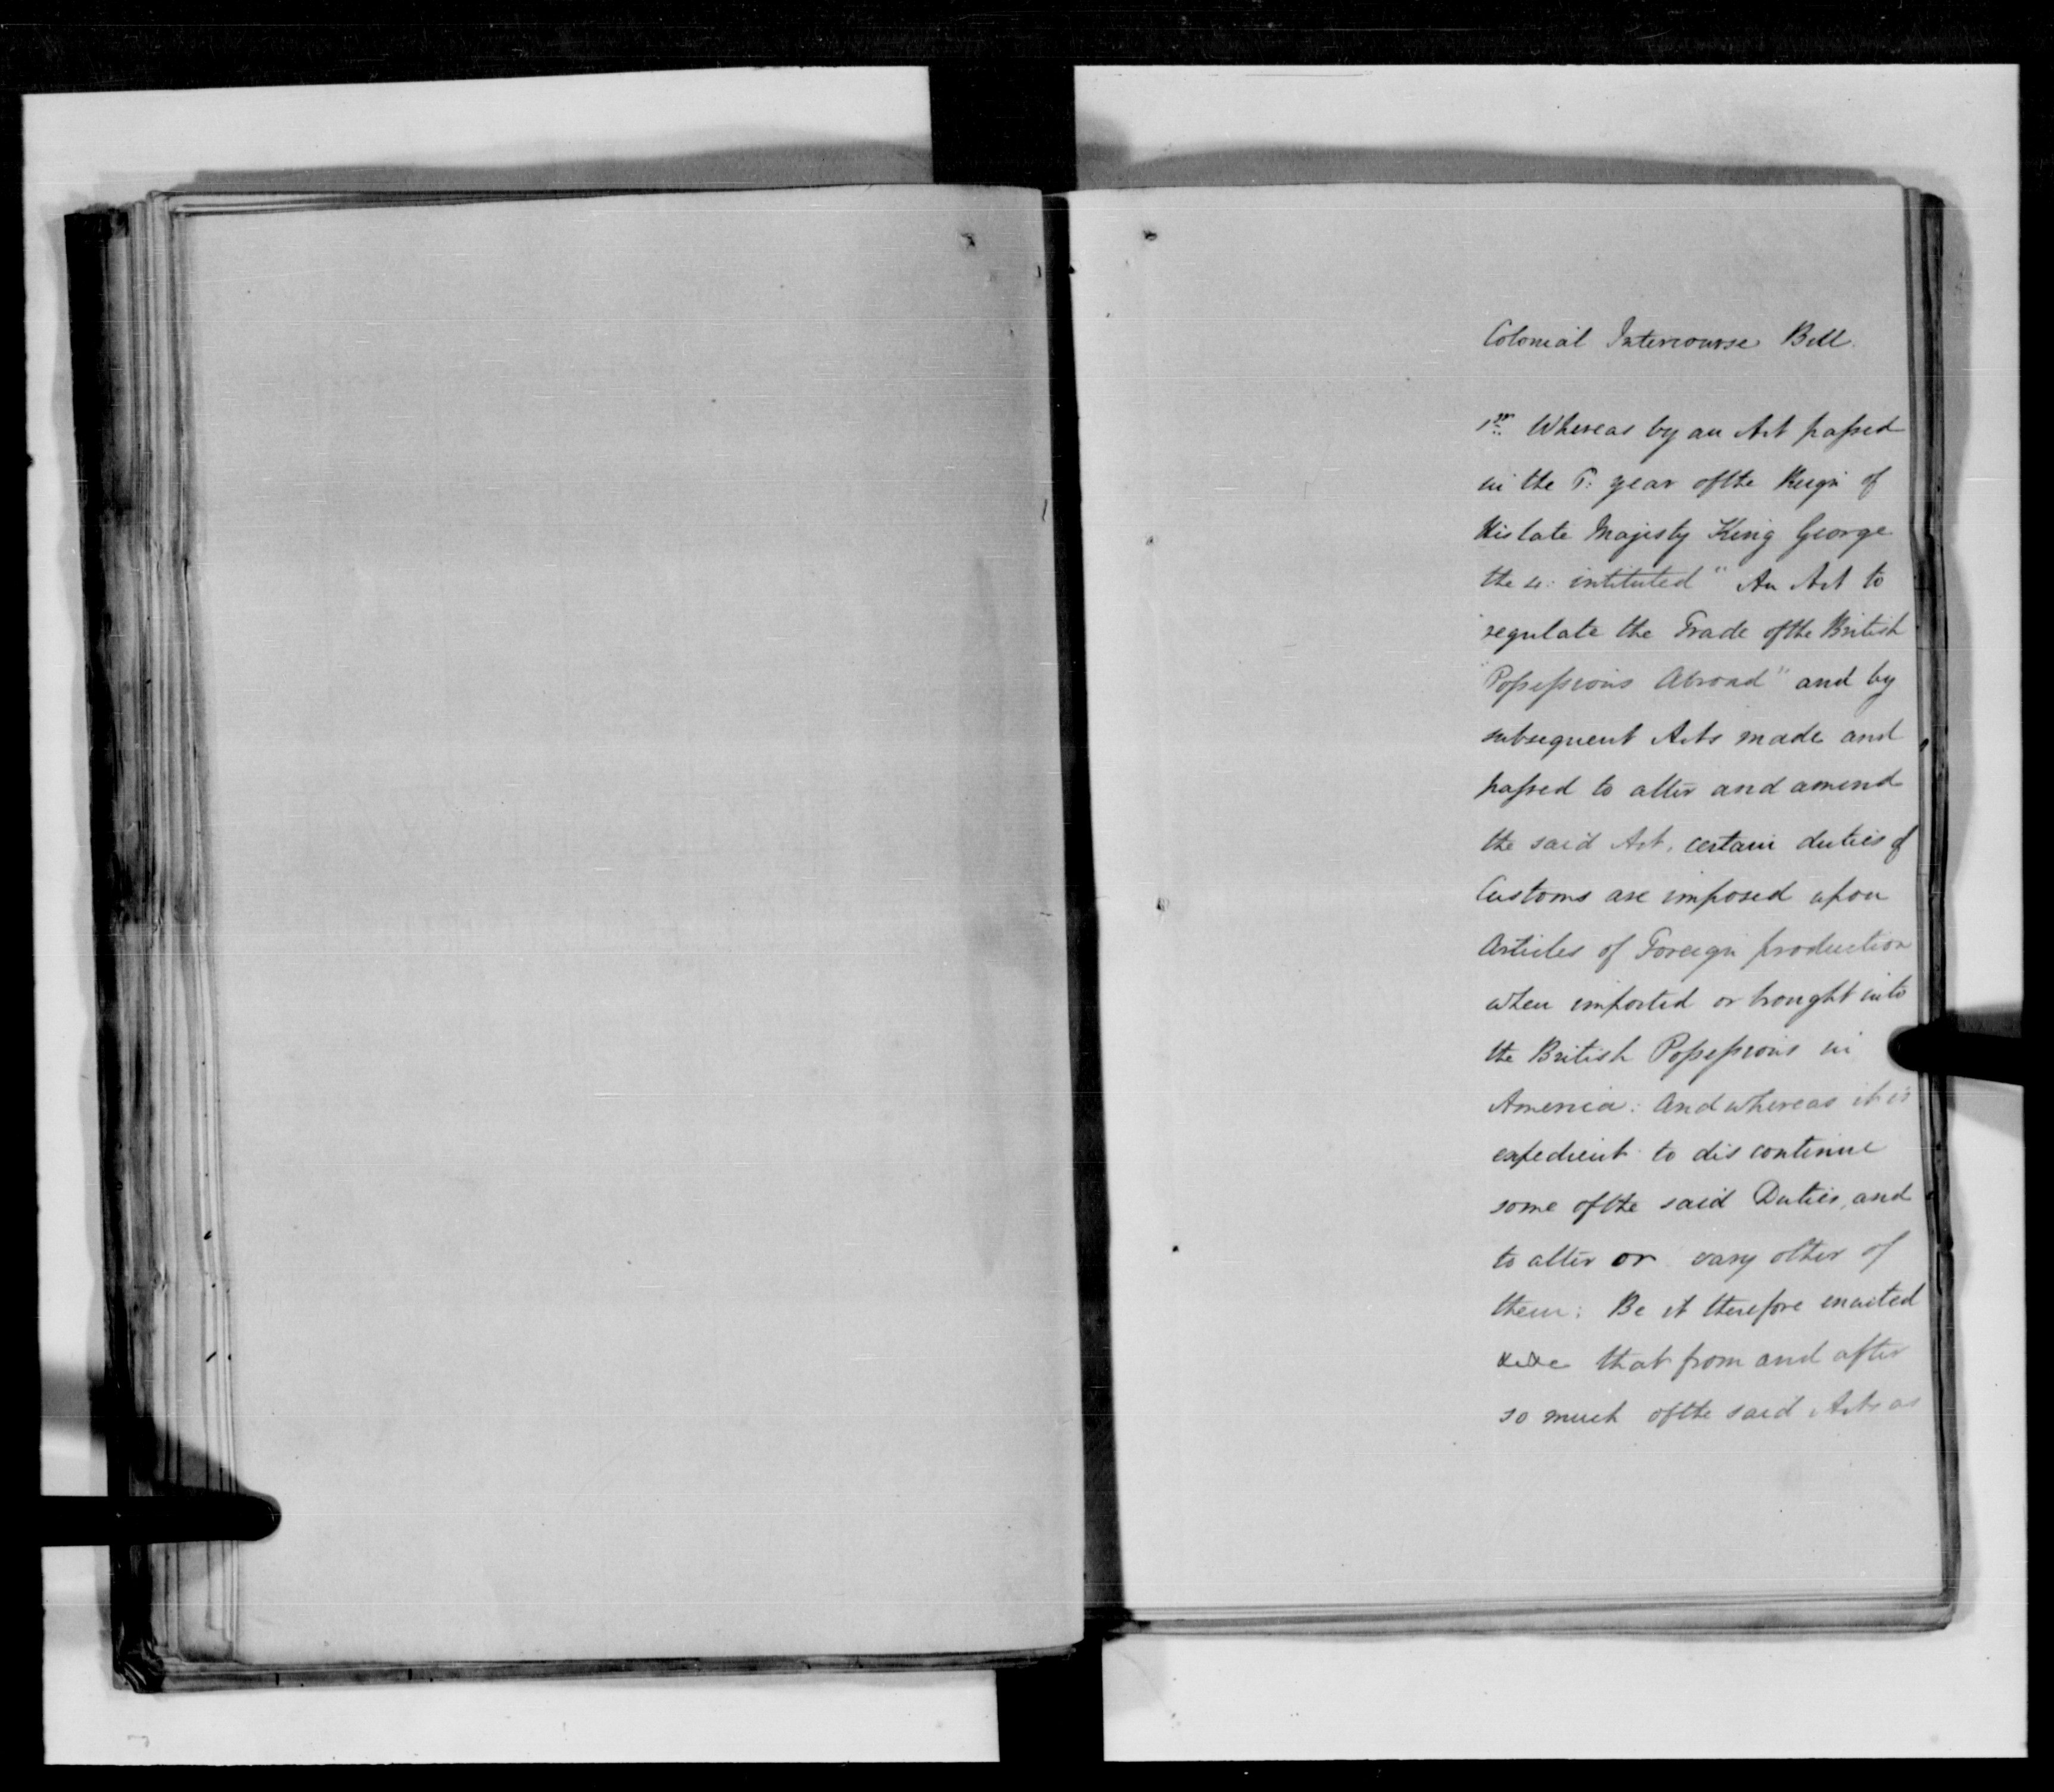 Colonial Intercourse Bill
1st Whereas by an Act passed
in the 6: year of the Reign of
His late Majesty King George
the 4: intituted " An Act to
"regulate the Trade of the British
"Possessions Abroad" and by
subsequent Acts made and
passed to alter and amend
the said Act, certain duties of
Customs are imposed upon
Articles of Foreign production
when imported or brought into
the British Possessions in
America: And whereas it is
expedient to discontinue
some of the said Duties, and
to alter or vary other of
them: Be it therefore enacted
that from and after
so much of the said Acts as